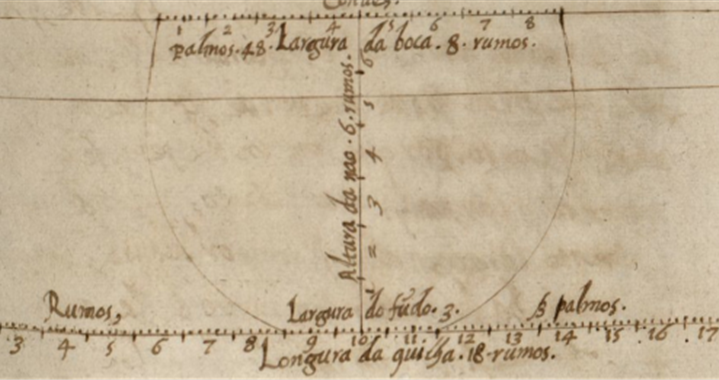 1 2 3 4 5 6 7 8
palmos. 48. Largura da boca. 8. rumos.
Altura da nao. 6. rumos.
1 2 3 4 5 6
Rumos, Largura do fũdo. 3. palmos.
3 4 5 6 7 8 9 10 11 12 13 14 15 16 17
Longura da quilha. 18. rumos.